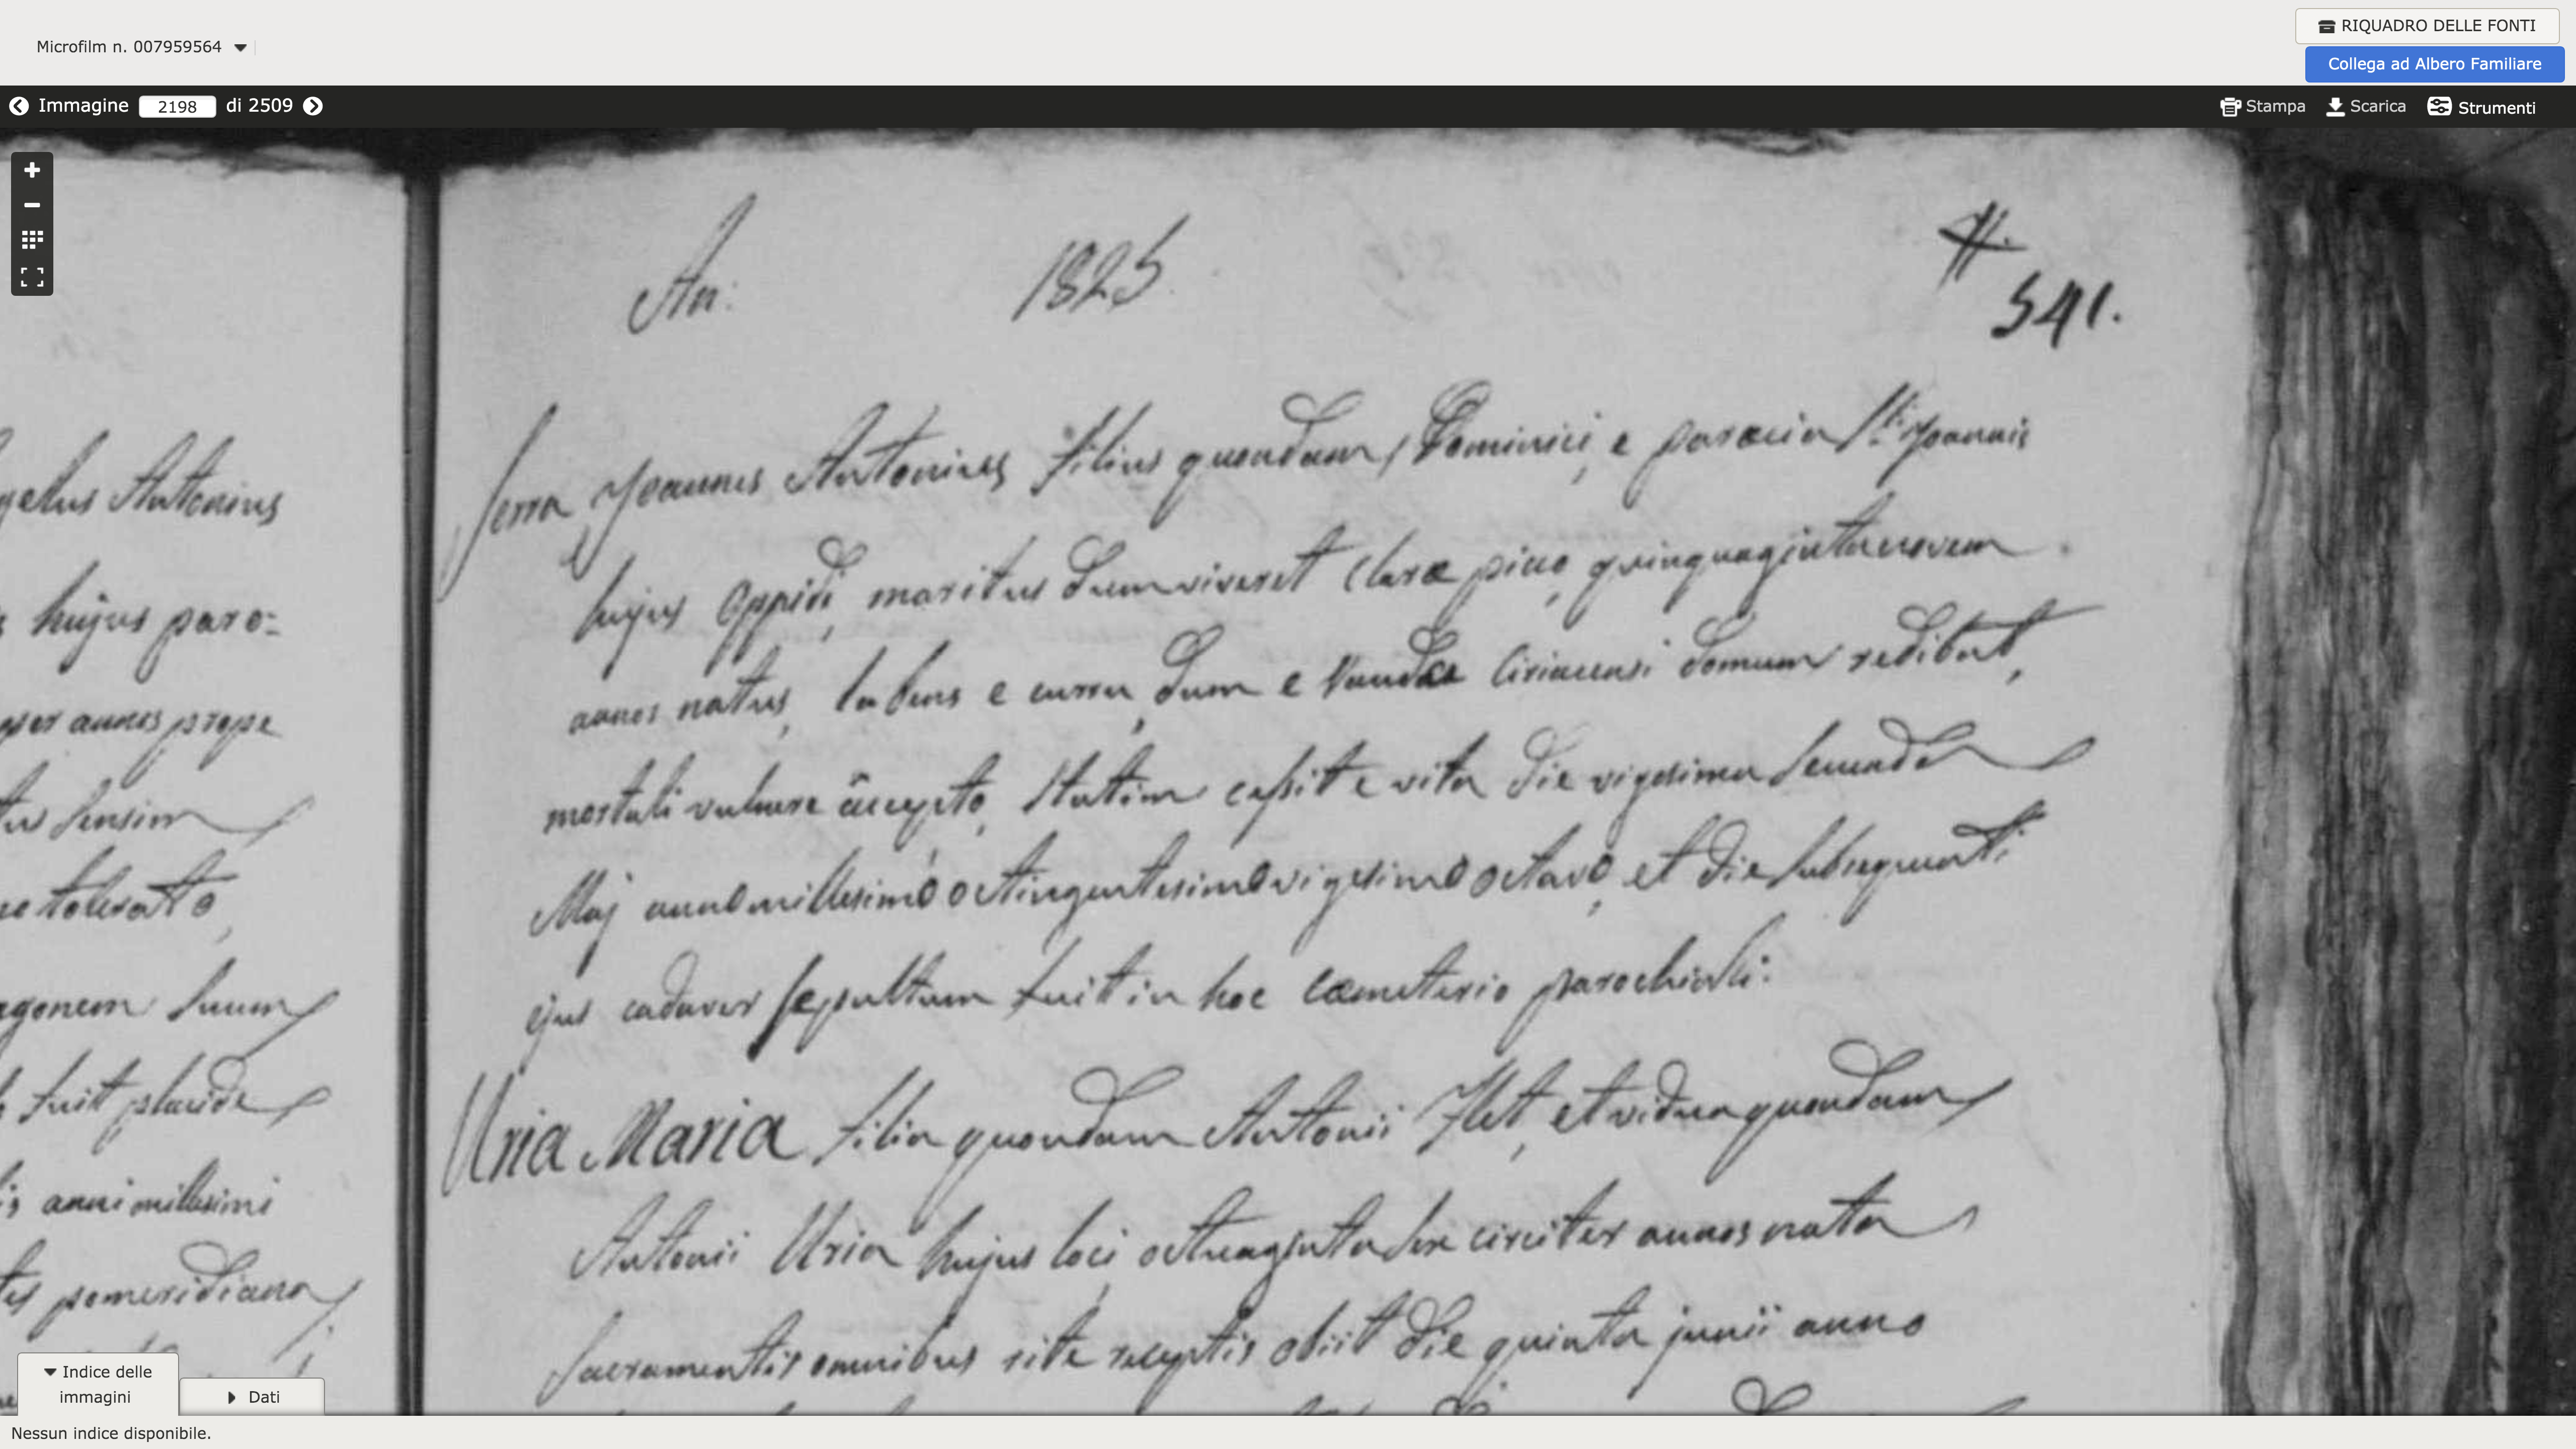 Microfilm n. 007959564
RIQUADRO DELLE FONTI
Collega ad Albero Familiare
Immagine 2198 di 2509
Stampa Scarica Strumenti
An: 1825
541.
Serra Joannes Antonius filius quondam Dominici, e paræcia Sti Joannis
hujus Oppidi, maritus dum viveret Claræ pino, quinquagintanovem
annos natus, labens e curru, dum e Vauda Ciriacensi domum redibat,
mortali vulnere accepto, statim cessit e vita die vigesima secunda
Maj anno millesimo octingentesimo vigesimo octavo, et die subsequenti
ejus cadaver sepultum fuit in hoc Cæmeterio parochiali:
Uria Maria filia quondam Antonii et vidua quondam
Antonii Uria hujus loci octuaginta sex circiter annos nata
Sacramentis omnibus rite receptis obiit die quinta junii anno
Antonius
hujus paro=
per annos prope
sensim
tolerato,
agonem suum
fuit placide
anni millesimi
pomeridiana
Indice delle
immagini
Dati
Nessun indice disponibile.